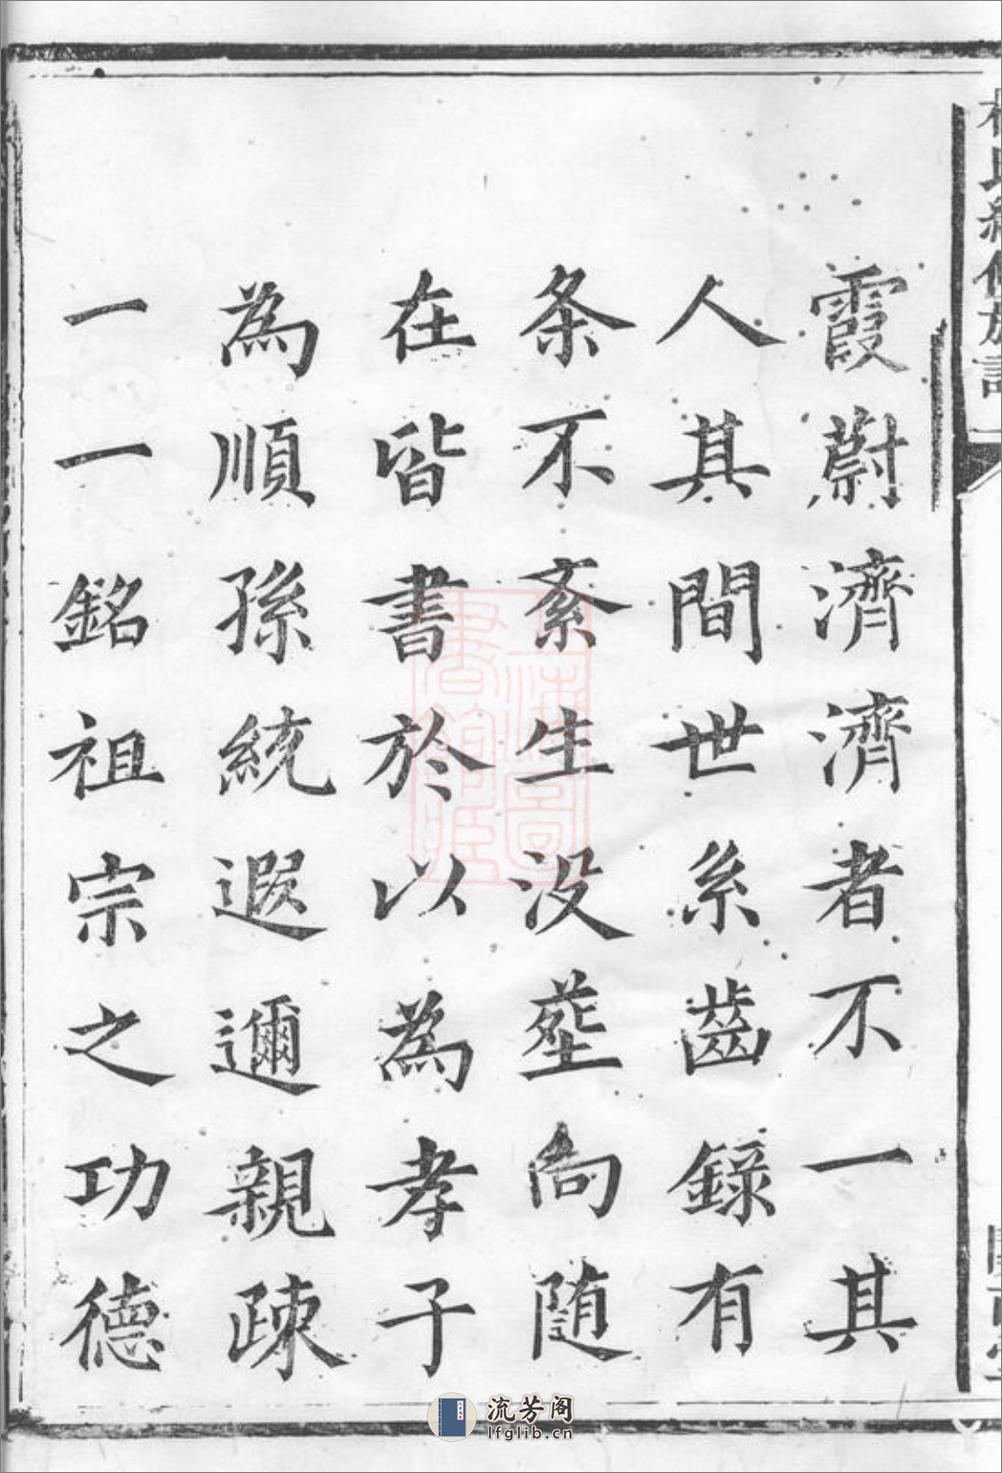 霞蔚濟濟者不一其
人其間世系齒錄有
条不紊生沒塋向随
在皆書於以為孝子
為順孫統遐邇親疎
一一銘祖宗之功德
流芳阁
lfglib.cn